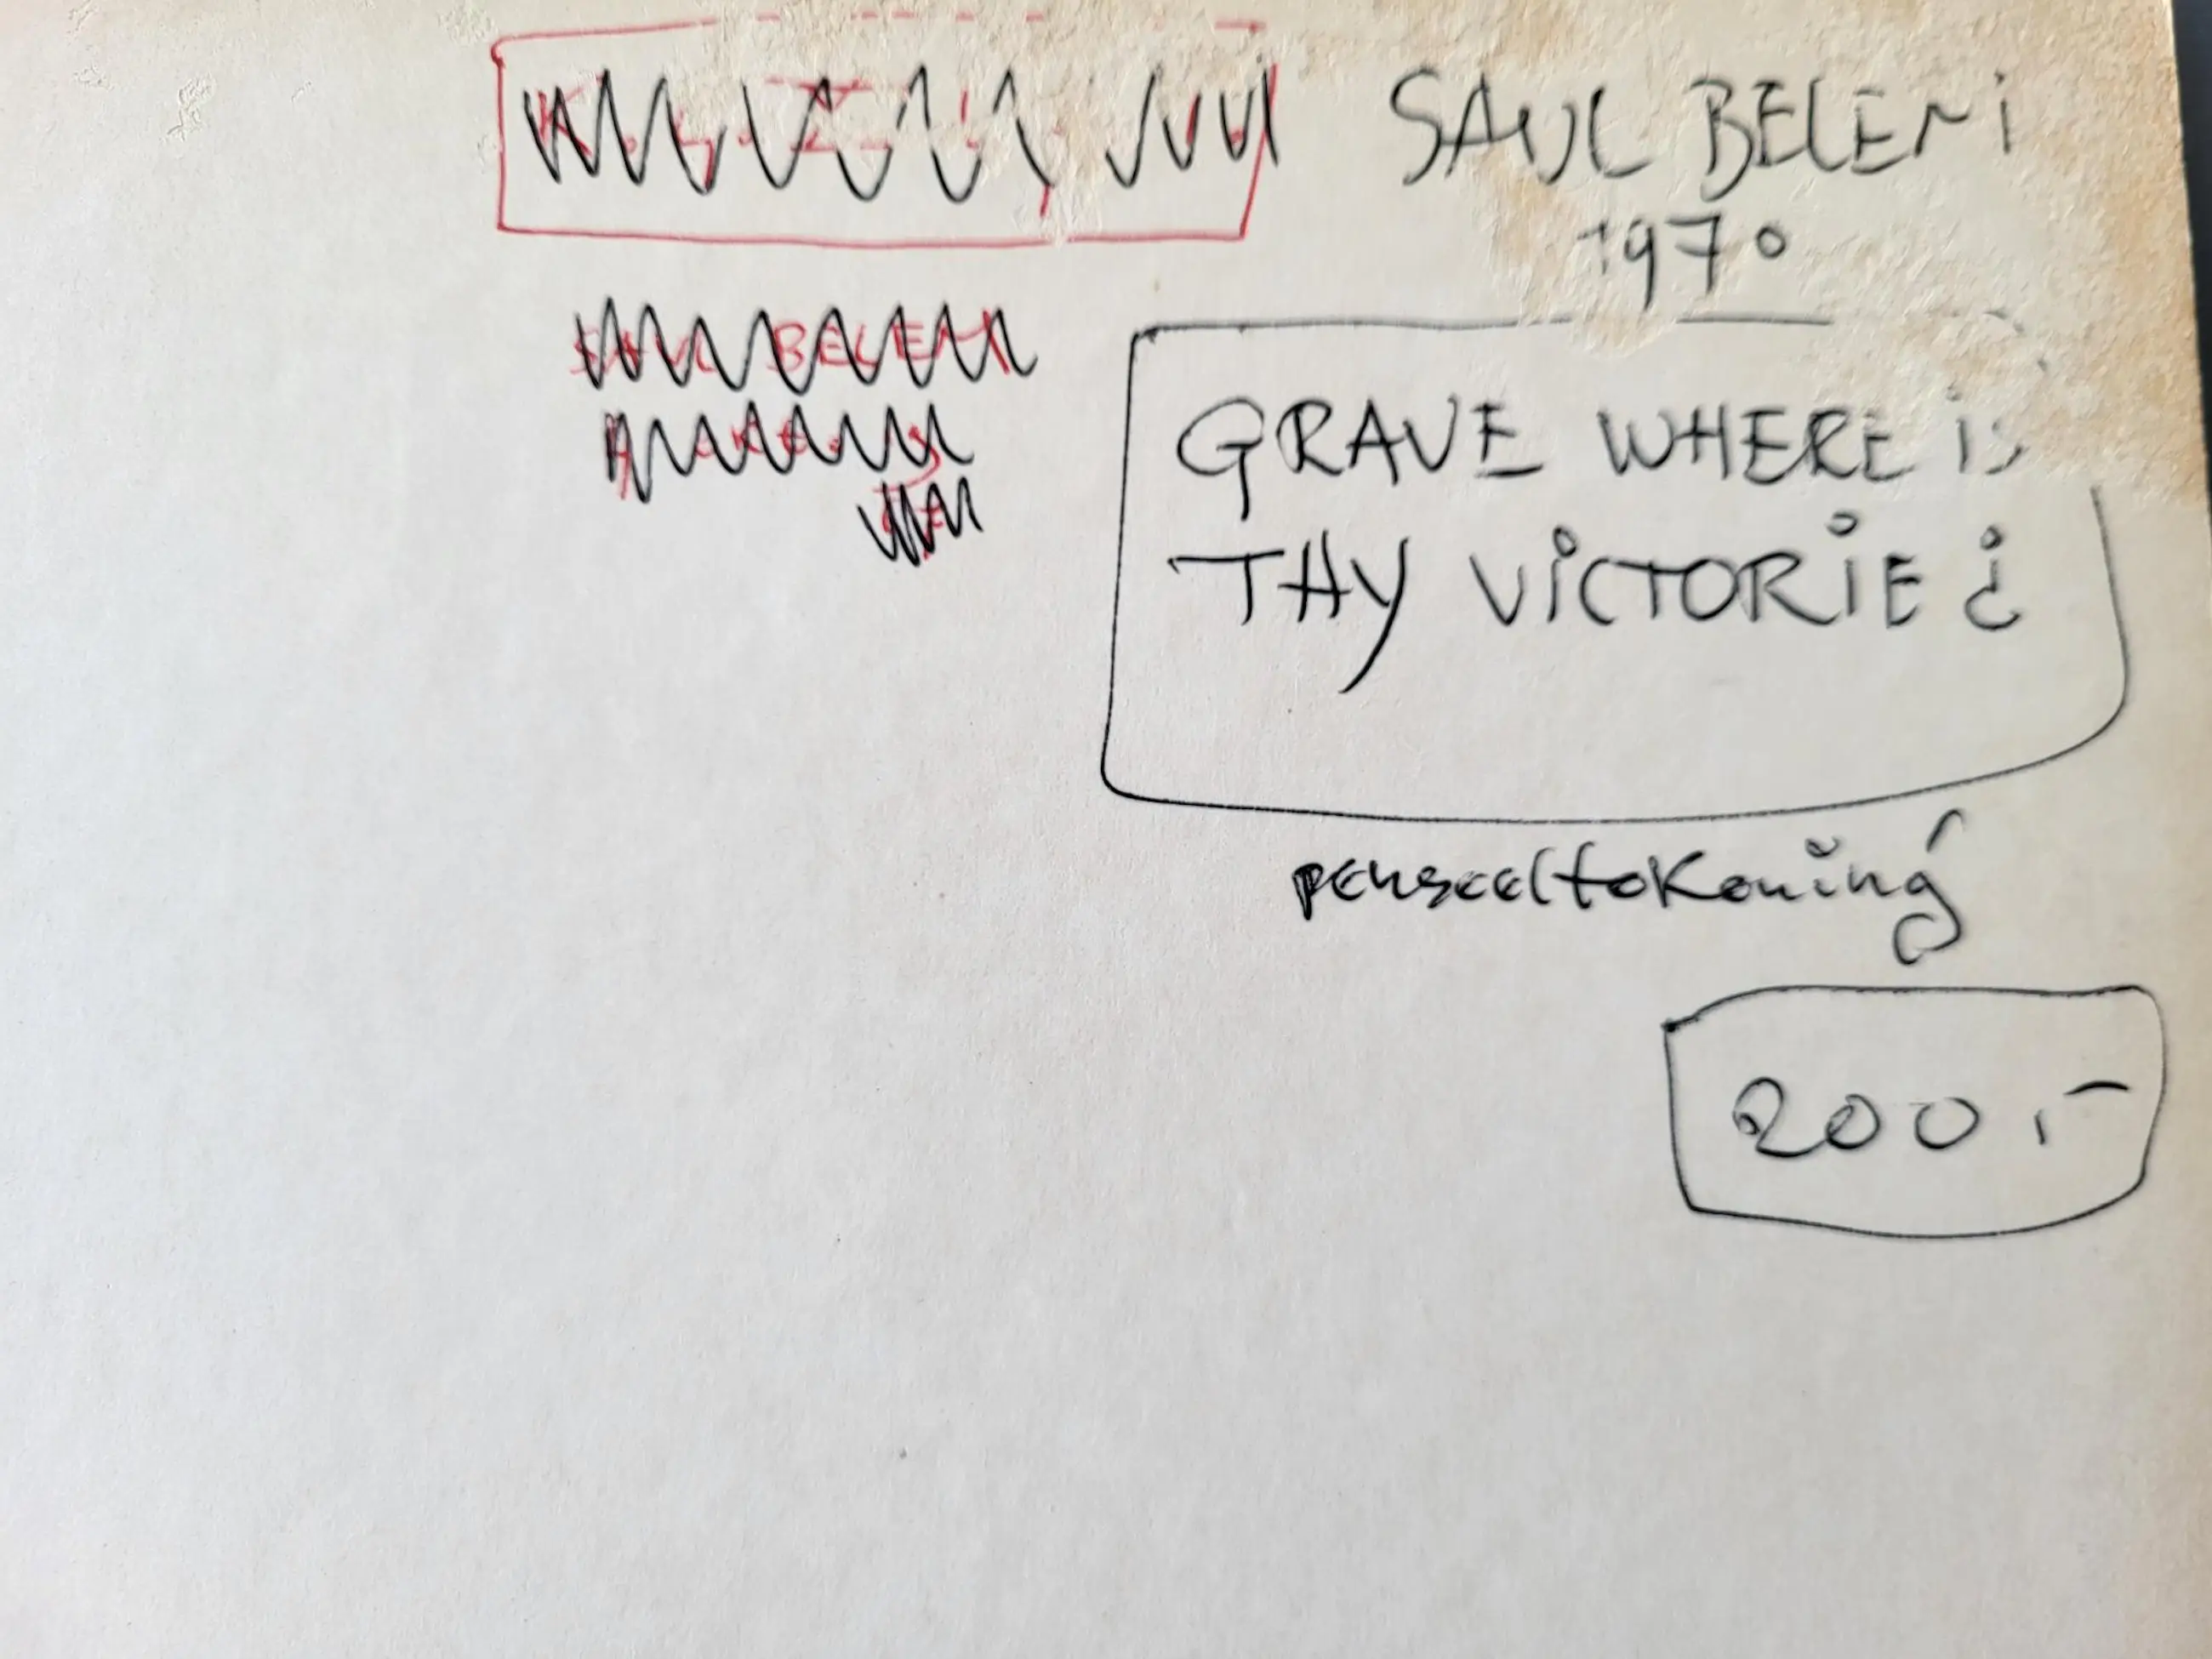 SAUL BELEMI
1970
BELEM
GRAVE WHERE is
THY ViCTORiE ¿
penseeltekening
200,-